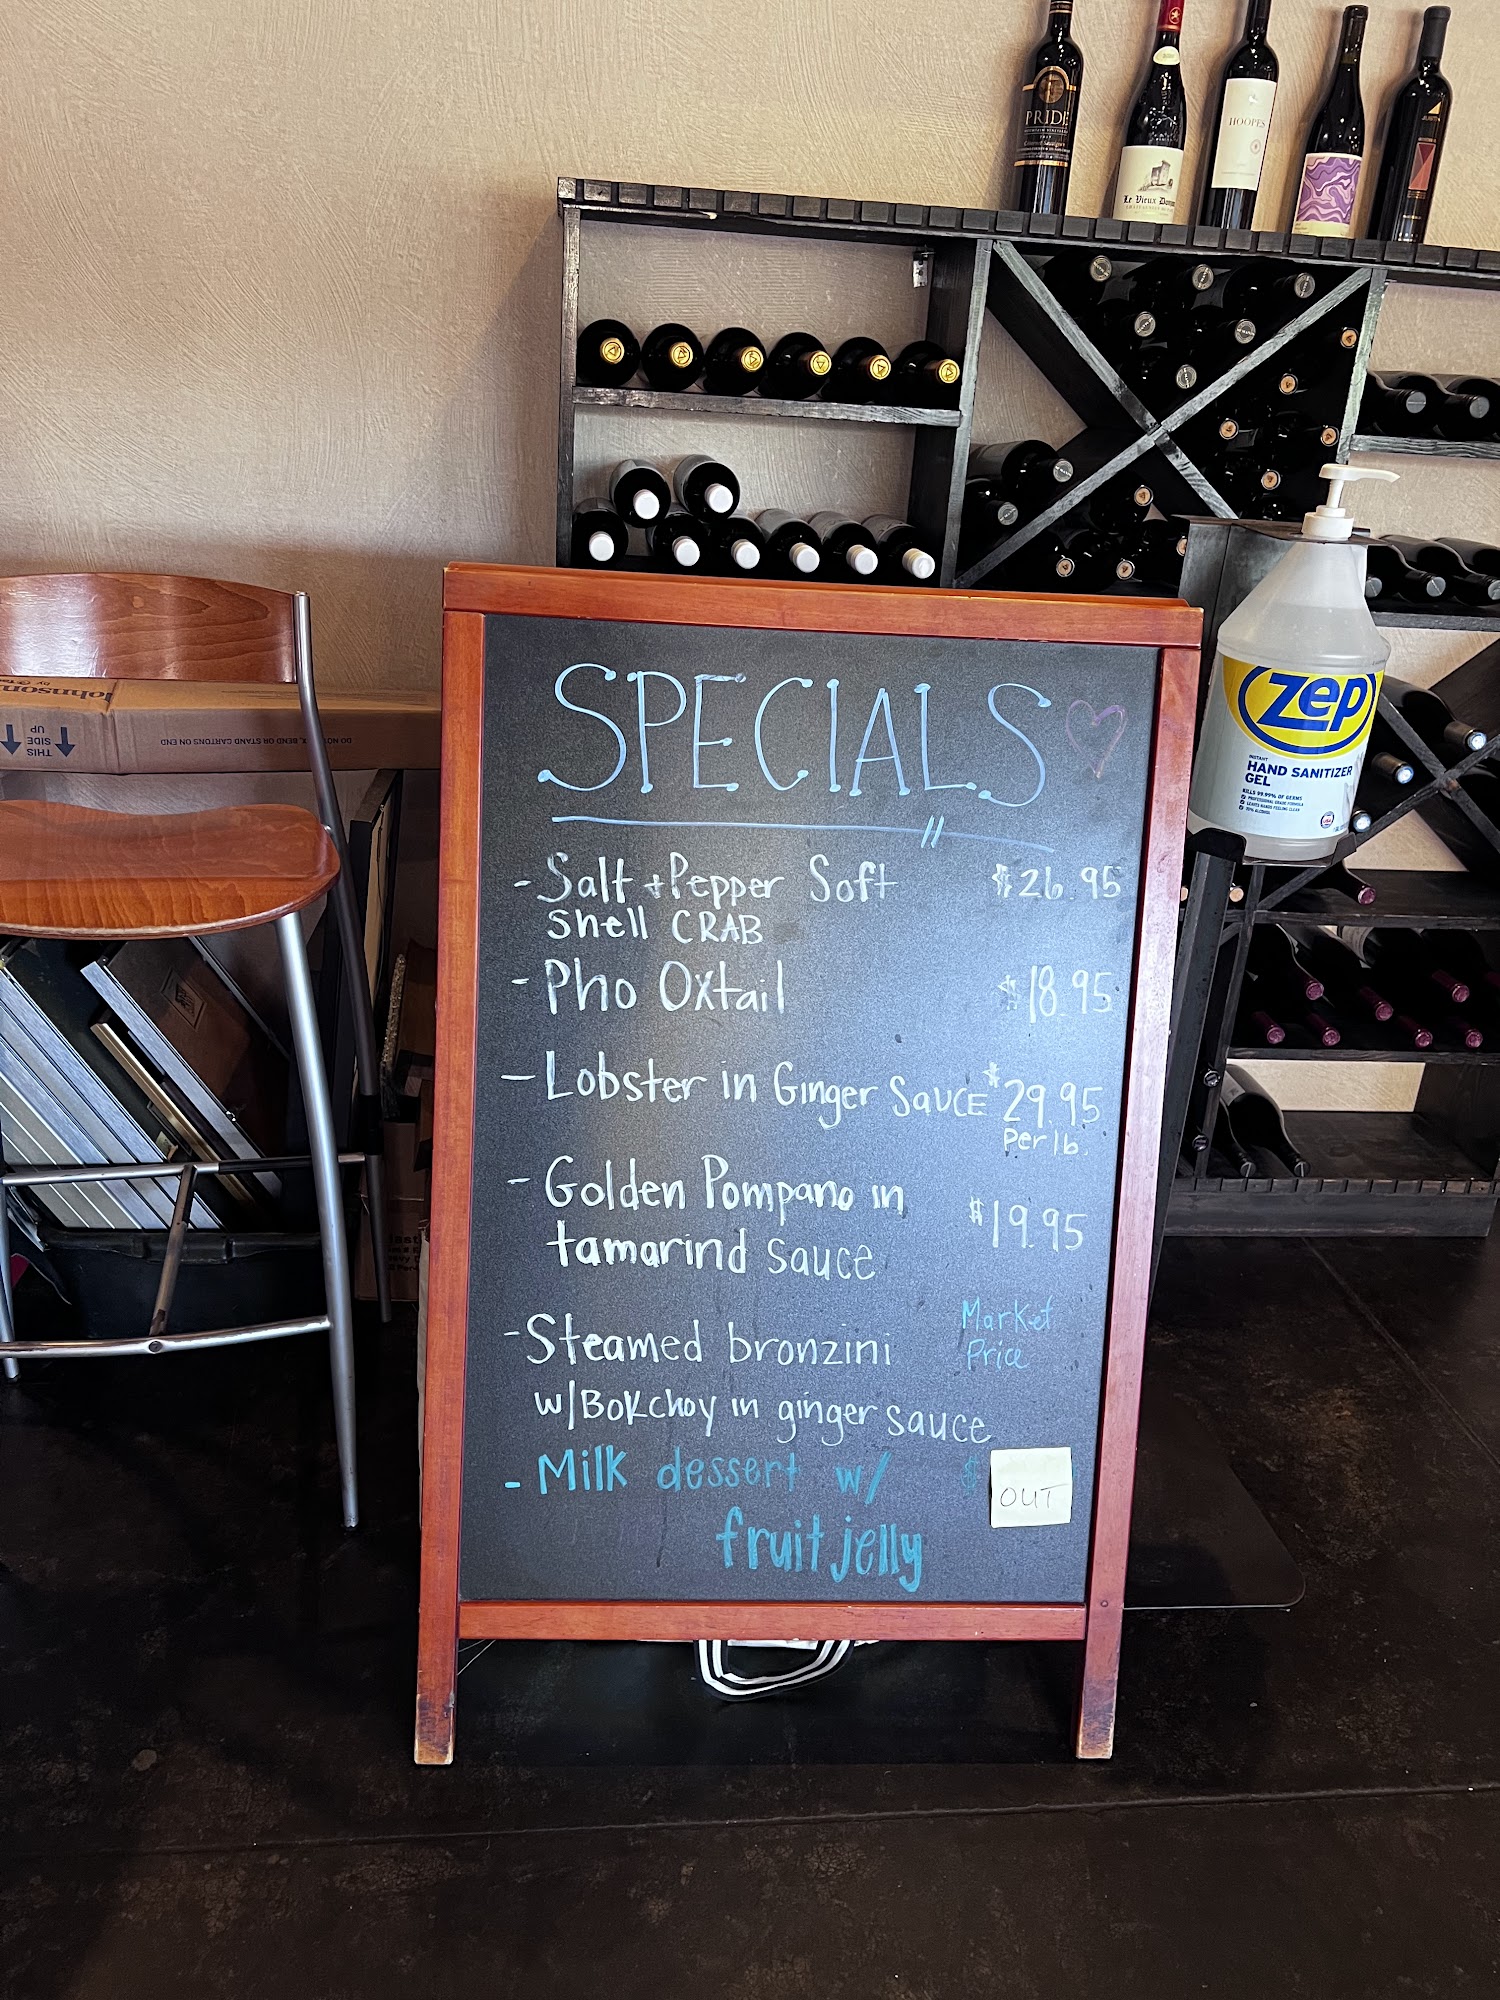 PRIDE
Le Vieux
HOOPES
SPECIALS
- Salt + Pepper Soft $26.95
Shell CRAB
- Pho Oxtail $18.95
- Lobster in Ginger Sauce $29.95
Per lb.
- Golden Pompano in
tamarind sauce $19.95
- Steamed bronzini Market
Price
w/Bokchoy in ginger sauce
- Milk dessert w/ $
OUT
fruit jelly
zep
INSTANT
HAND SANITIZER
GEL
KILLS 99.99% OF GERMS
THIS
SIDE
UP
DO NOT BEND OR STAND CARTONS ON END